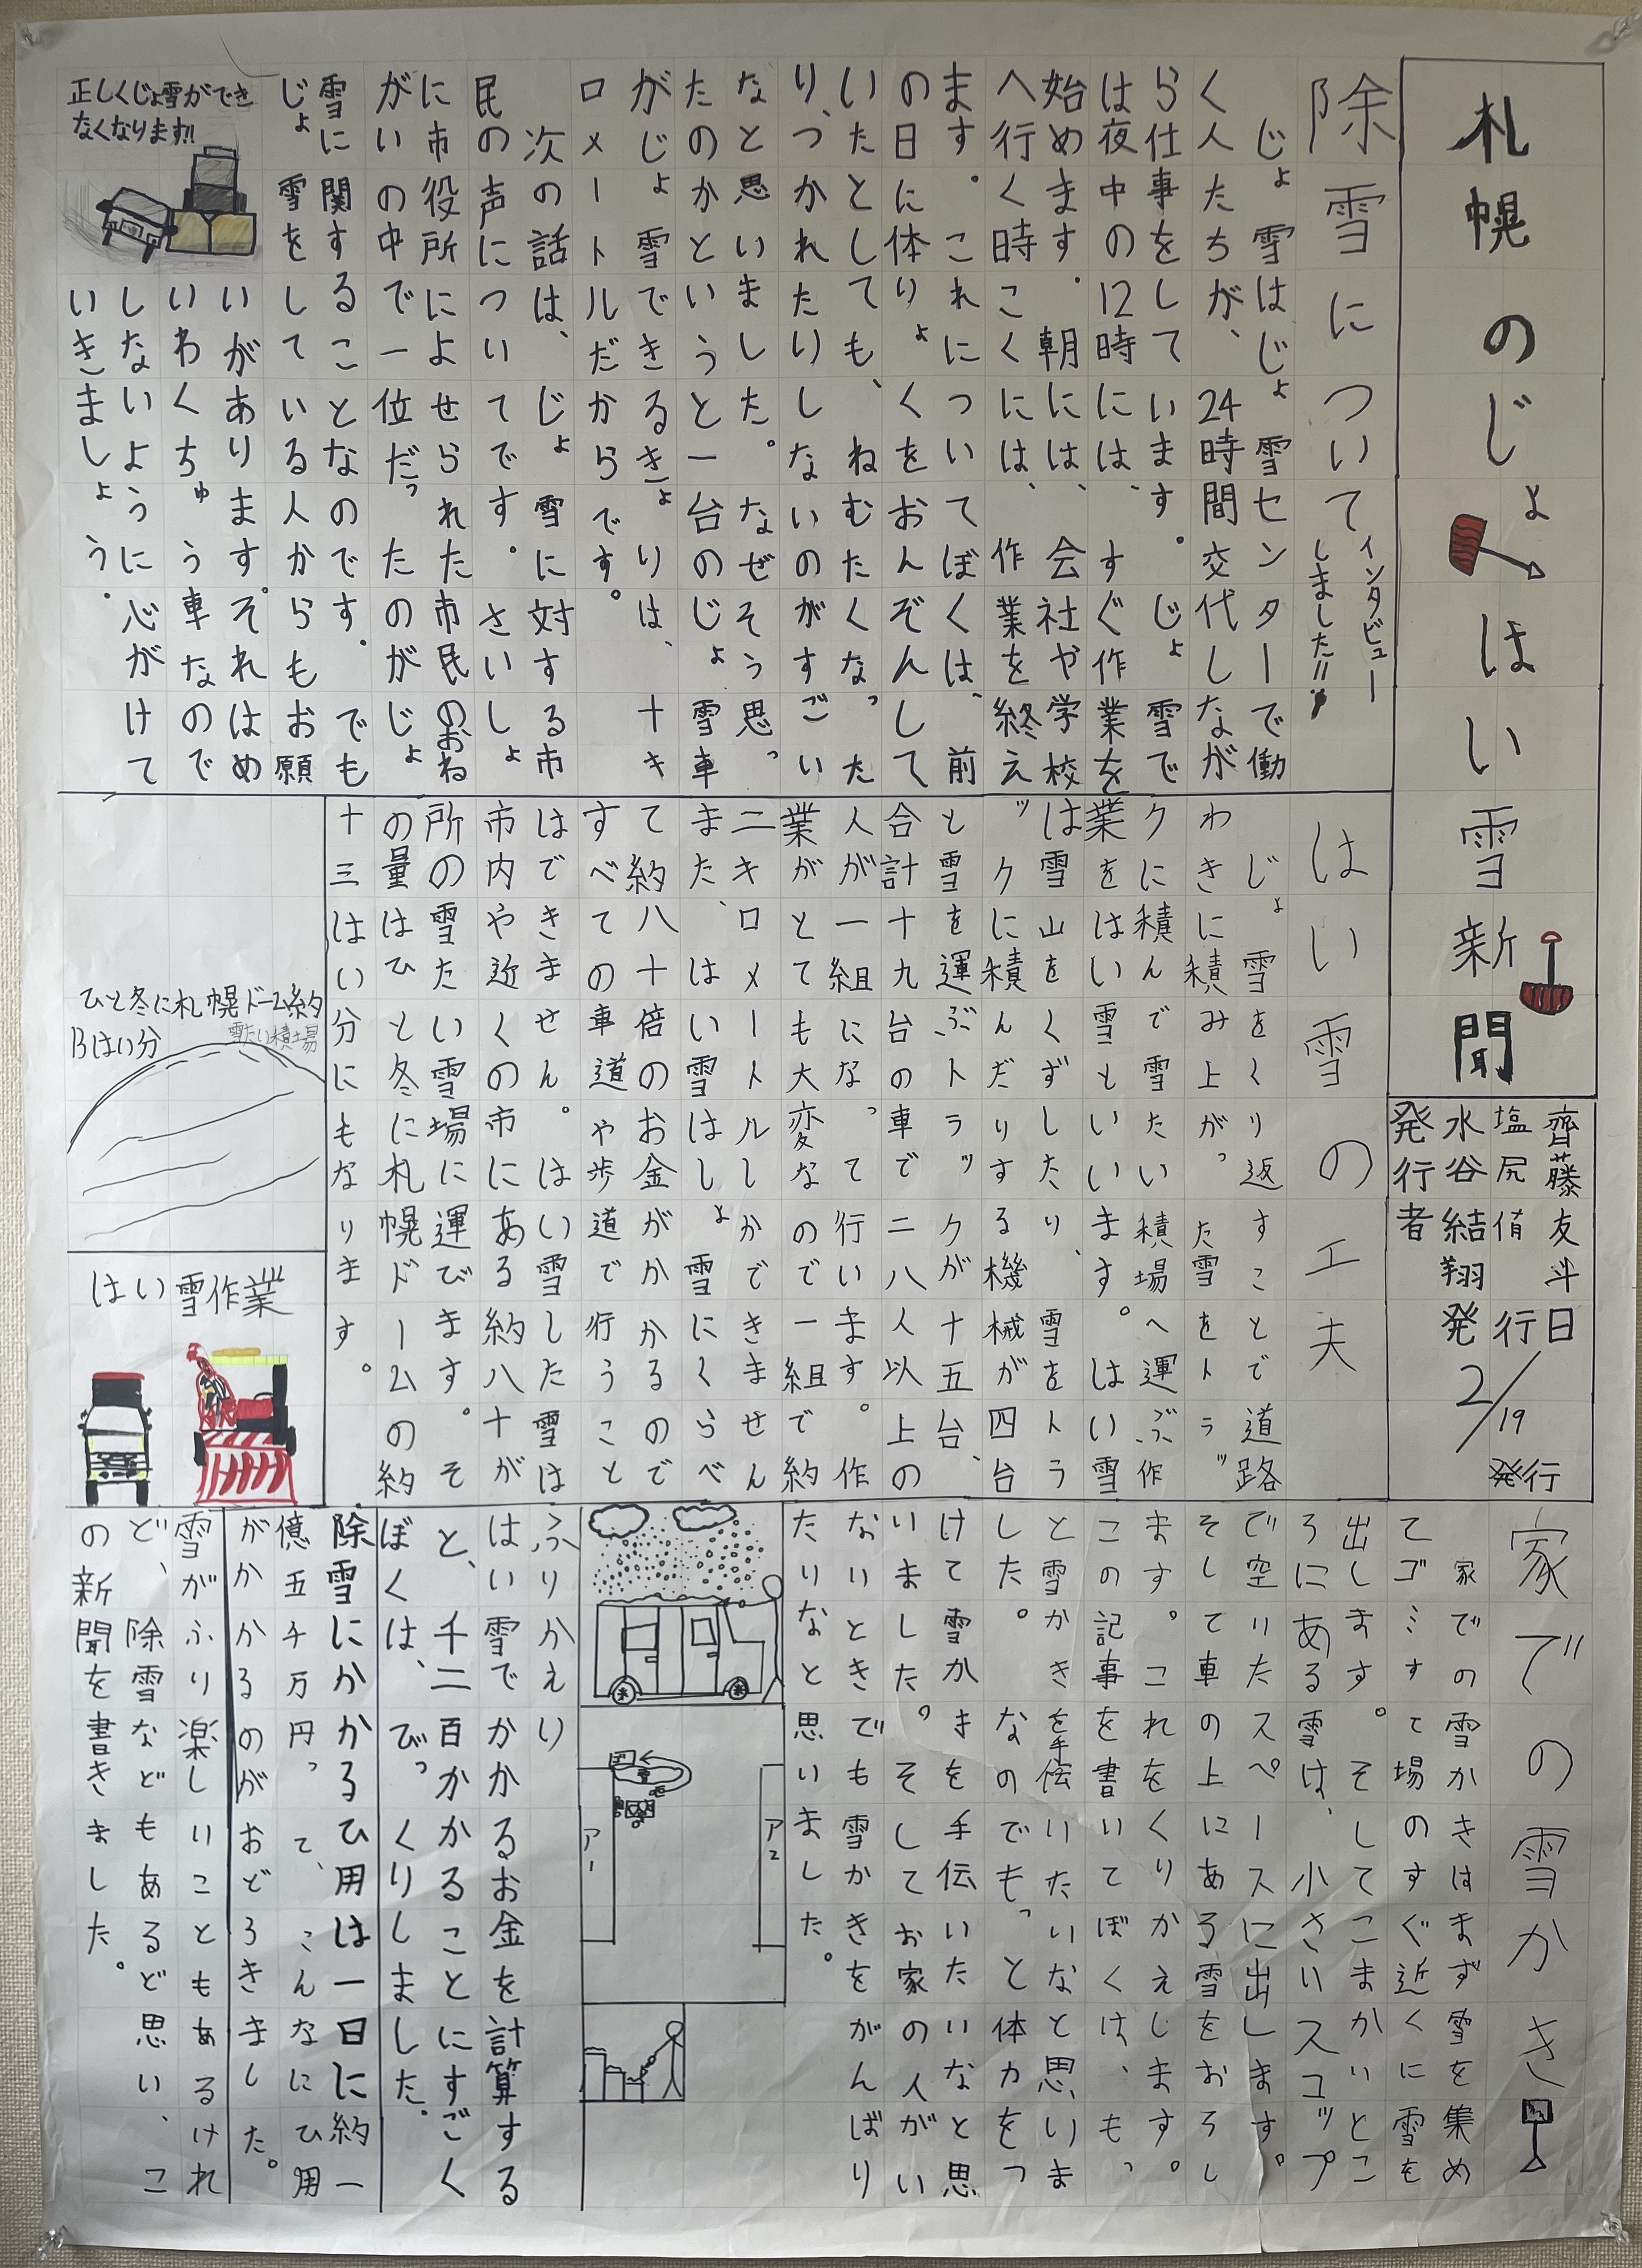 札幌のじょはい雪新聞
齊藤友斗
塩尻侑
水谷結翔
発行者
発行日
2/19
発行
除雪について
インタビュー
しました!!
じょ雪はじょ雪センターで働
く人たちが、24時間交代しなが
ら仕事をしています。じょ雪で
は夜中の12時には、すぐ作業を
始めます。朝には、会社や学校
へ行く時こくには、作業を終え
ます。これについてぼくは、前
の日に体りょくをおんぞんして
いたとしても、ねむたくなった
り、つかれたりしないのがすごい
なと思いました。なぜそう思っ
たのかというと一台のじょ雪車
がじょ雪できるきょりは、十キ
ロメートルだからです。
次の話は、じょ雪に対する市
民の声についてです。さいしょ
に市役所によせられた市民のおね
がいの中で一位だったのがじょ
雪に関することなのです。でも
じょ雪をしている人からもお願
いがあります。それはめ
いわくちゅう車なので
しないように心がけて
いきましょう。
正しくじょ雪ができ
なくなります!!
はい雪の工夫
じょ雪をくり返すことで道路
わきに積み上がった雪をトラッ
クに積んで雪たい積場へ運ぶ作
業をはい雪といいます。はい雪
は雪山をくずしたり、雪をトラ
ックに積んだりする機械が四台
と雪を運ぶトラックが十五台、
合計十九台の車で二八人以上の
人が一組になって行います。作
業がとても大変なので一組で約
二キロメートルしかできません
また、はい雪はじょ雪にくらべ
て約八十倍のお金がかかるので
すべての車道や歩道で行うこと
はできません。はい雪した雪は
市内や近くの市にある約八十が
所の雪たい雪場に運びます。そ
の量はひと冬に札幌ドームの約
十三はい分にもなります。
ひと冬に札幌ドーム約
13はい分
雪たい積場
はい雪作業
家での雪かき
家での雪かきはまず雪を集め
てゴミすて場のすぐ近くに雪を
出します。そしてこまかいとこ
ろにある雪は、小さいスコップ
で空いたスペースに出します。
そして車の上にある雪をおろし
ます。これをくりかえします。
この記事を書いてぼくは、もっ
と雪かきを手伝いたいなと思いま
した。なのでもっと体力をつ
けて雪かきを手伝いたいなと思
いました。そしてお家の人がい
ないときでも雪かきをがんばり
たりなと思いました。
ア1
ア2
ふりかえり
はい雪でかかるお金を計算する
と、千二百かかることにすごく
ぼくは、びっくりしました。
除雪にかかるひ用は一日に約一
億五千万円って、こんなにひ用
がかかるのがおどろきました。
雪がふり楽しいこともあるけれ
ど、除雪などもあるど思い、こ
の新聞を書きました。